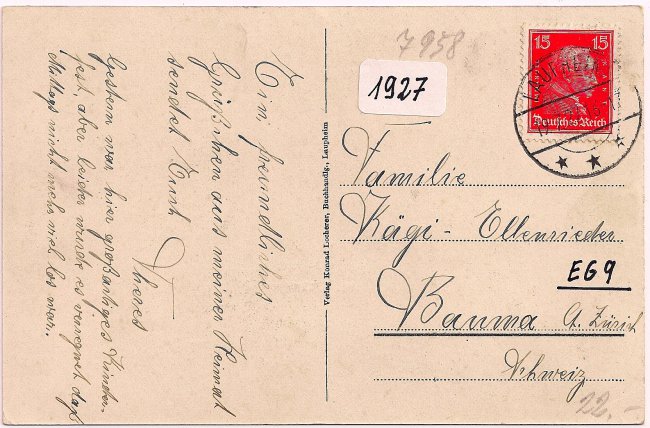 7958
1927
15 15
Deutsches Reich
LAUPHEIM
Ein freundliches
Grüßchen aus meiner Heimat
sendet Euch
Theres
Gestern war hier großartiges Kinder-
fest, aber leider wurde es verregnet daß
Mittags nicht mehr viel los war.
Verlag Konrad Locherer, Buchhandlg., Laupheim
Familie
Kägi-Ellenrieder
EG9
Bauma Ct. Zürich
Schweiz
22.-